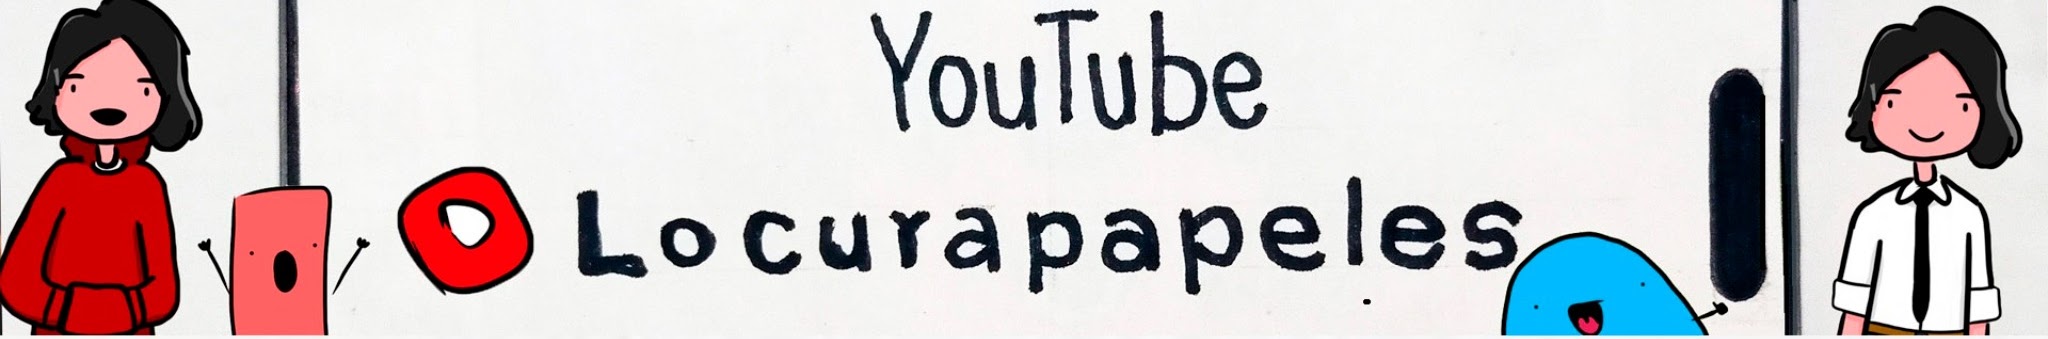 YouTube
Locurapapeles